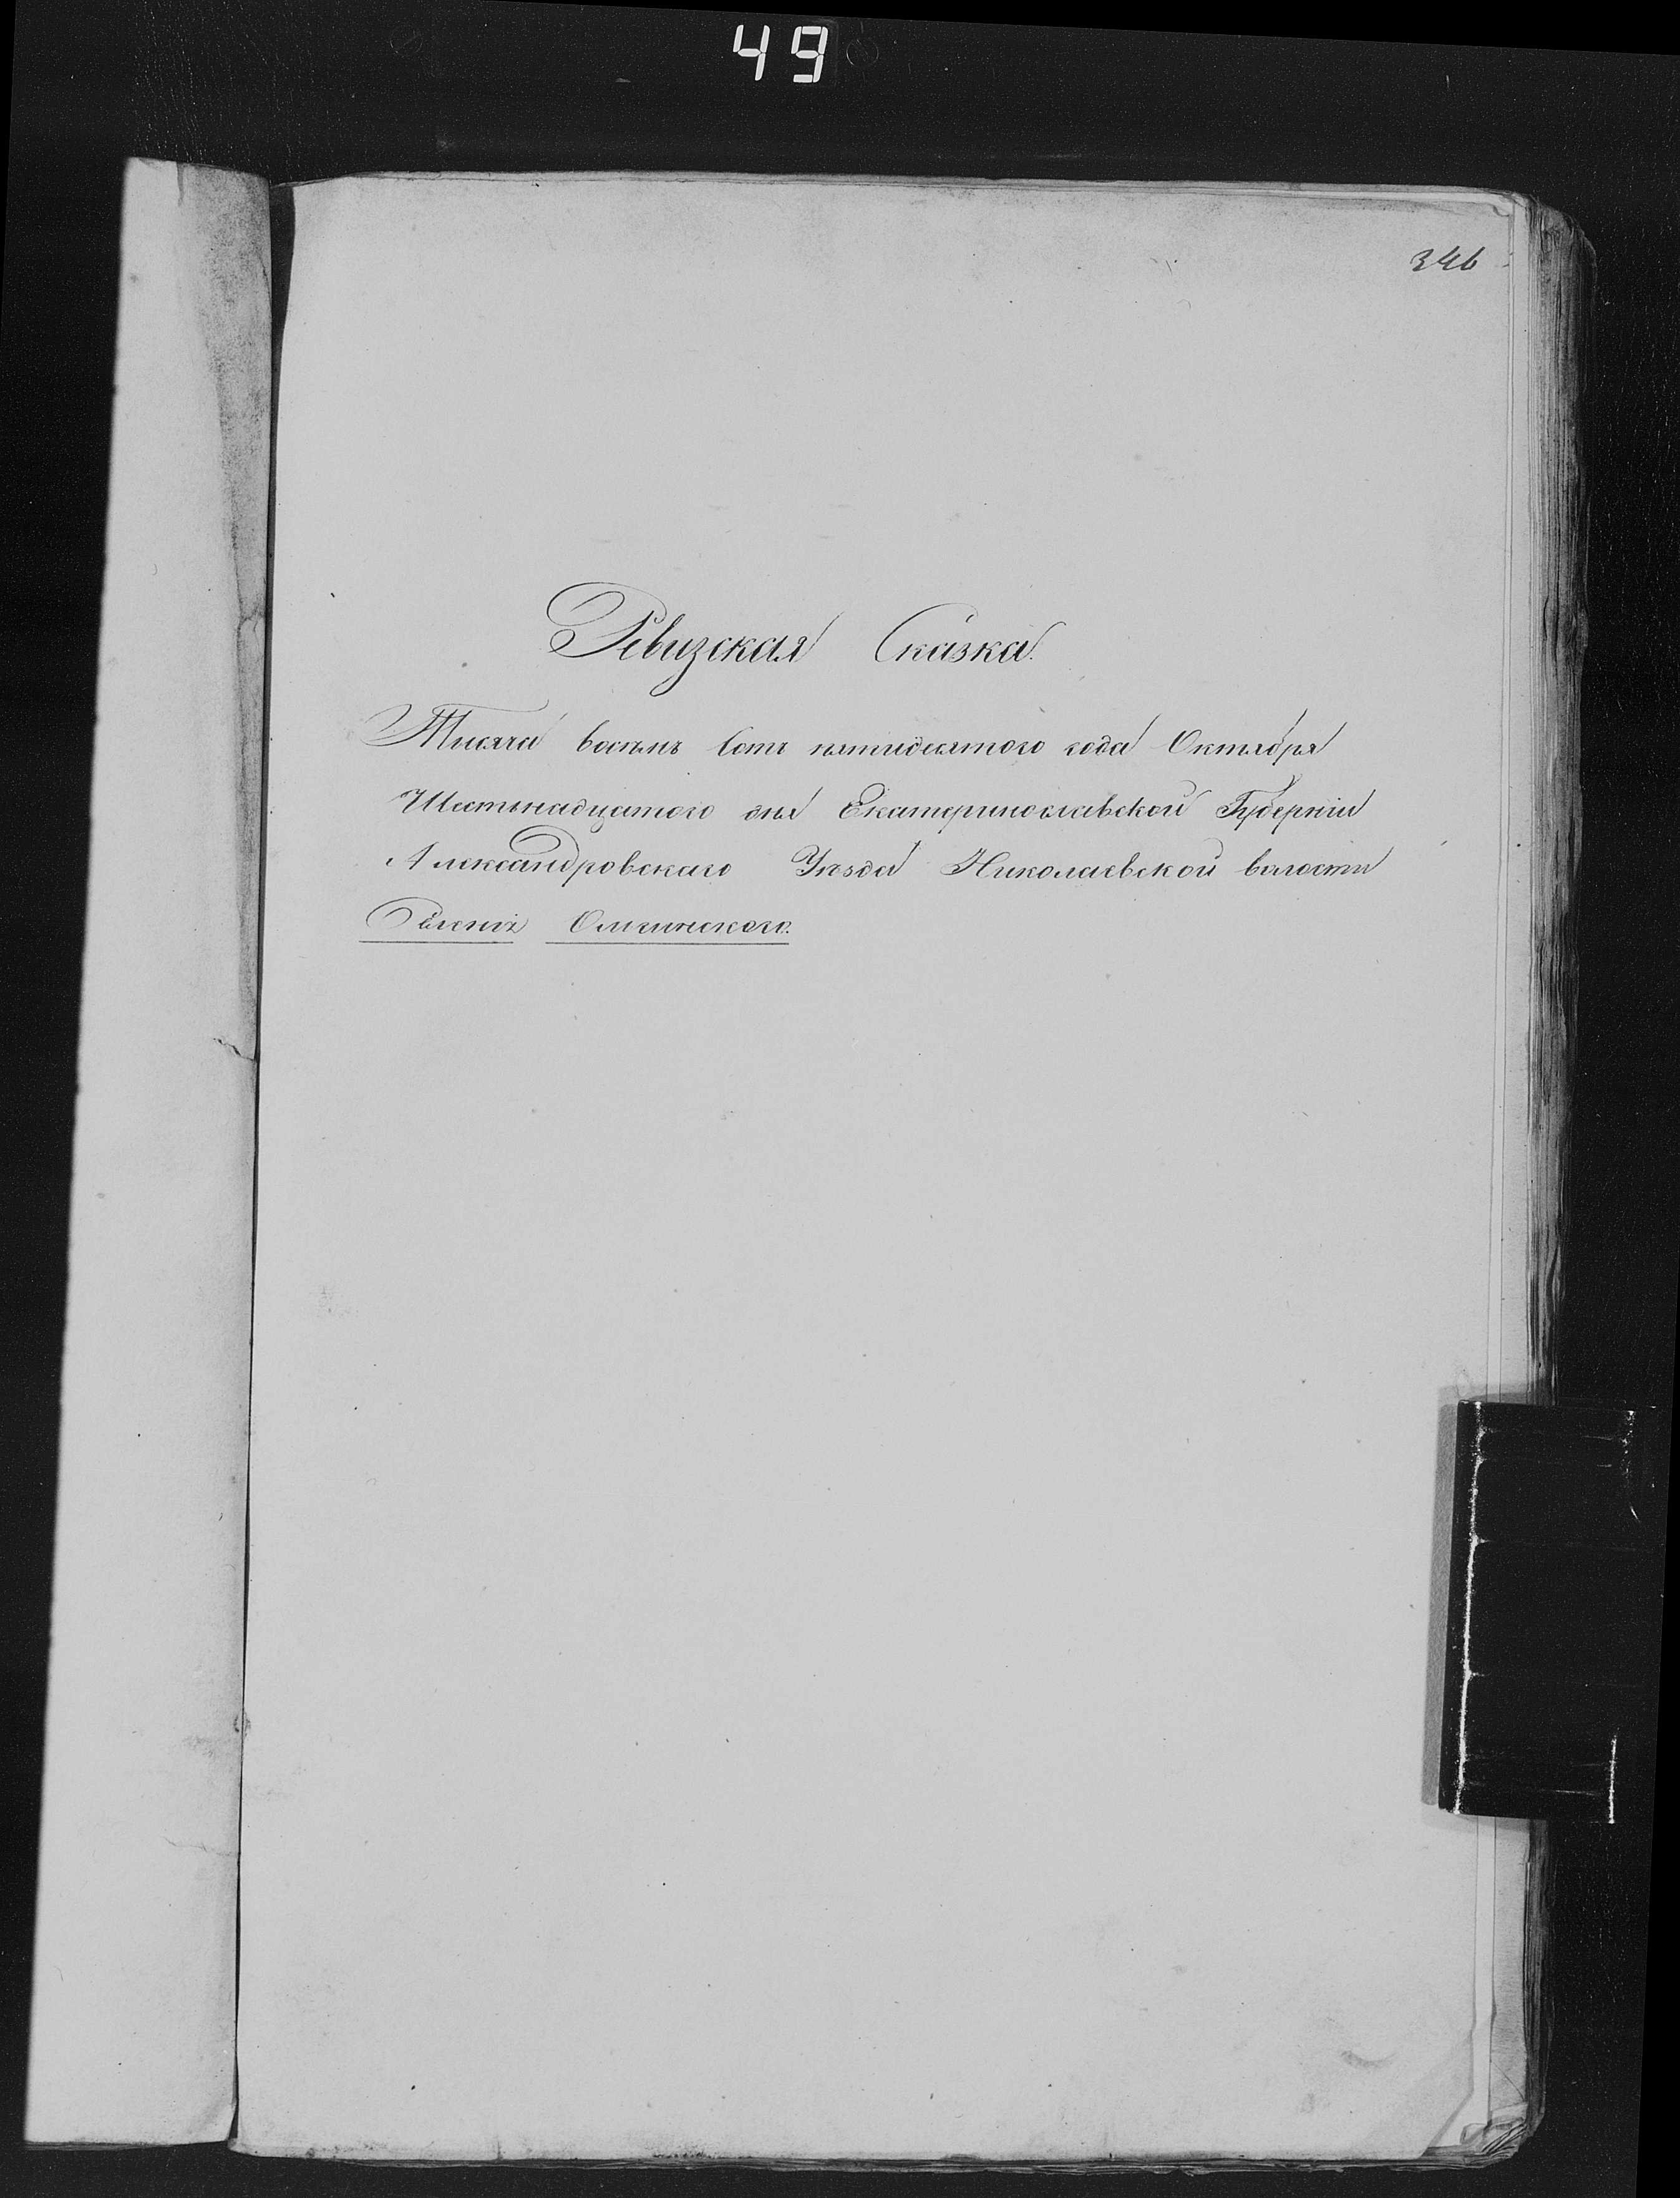 49
346
Ревизская Сказка.
Тысяча восемь Сотъ пятидесятого года Октября
Шестьнадцатого дня Екатеринославской Губерніи
Александровскаго Уѣзда Николаевской волости
Селенія Ольгинского.